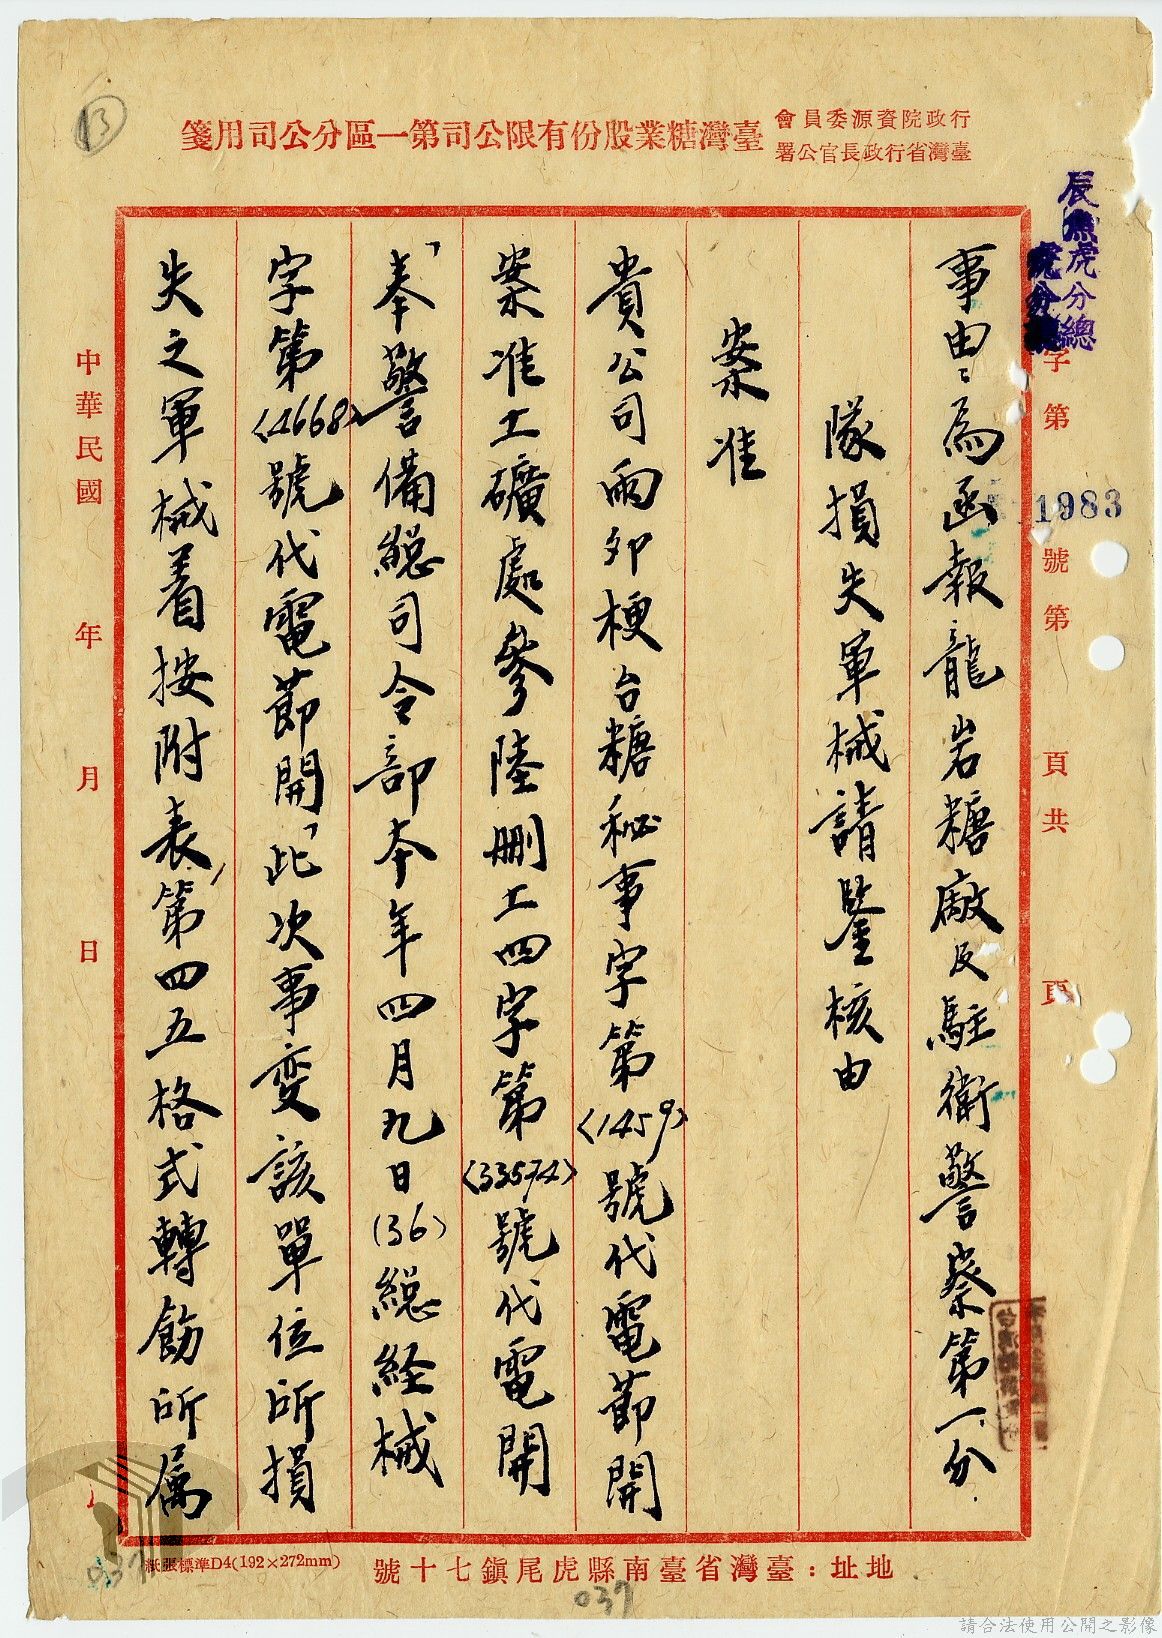 行政院資源委員會
臺灣省行政長官公署
臺灣糖業股份有限公司第一區分公司用箋
13
虎分總
字第1983號第 頁共 頁
事由：為函報龍岩糖廠及駐衛警察第一分
隊損失軍械請鑒核由
案准
貴公司兩卯梗台糖秘事字第〈1459〉號代電節開
案准工礦處參陸刪工四字第〈33574〉號代電開
「奉警備總司令部本年四月九日(36)總経械
字第〈4668〉號代電節開「此次事变該單位所損
失之軍械着按附表第四五格式轉飭所属
中華民國 年 月 日
紙張標準D4(192×272mm)
地址：臺灣省臺南縣虎尾鎮七十號
037
037
請合法使用公開之影像